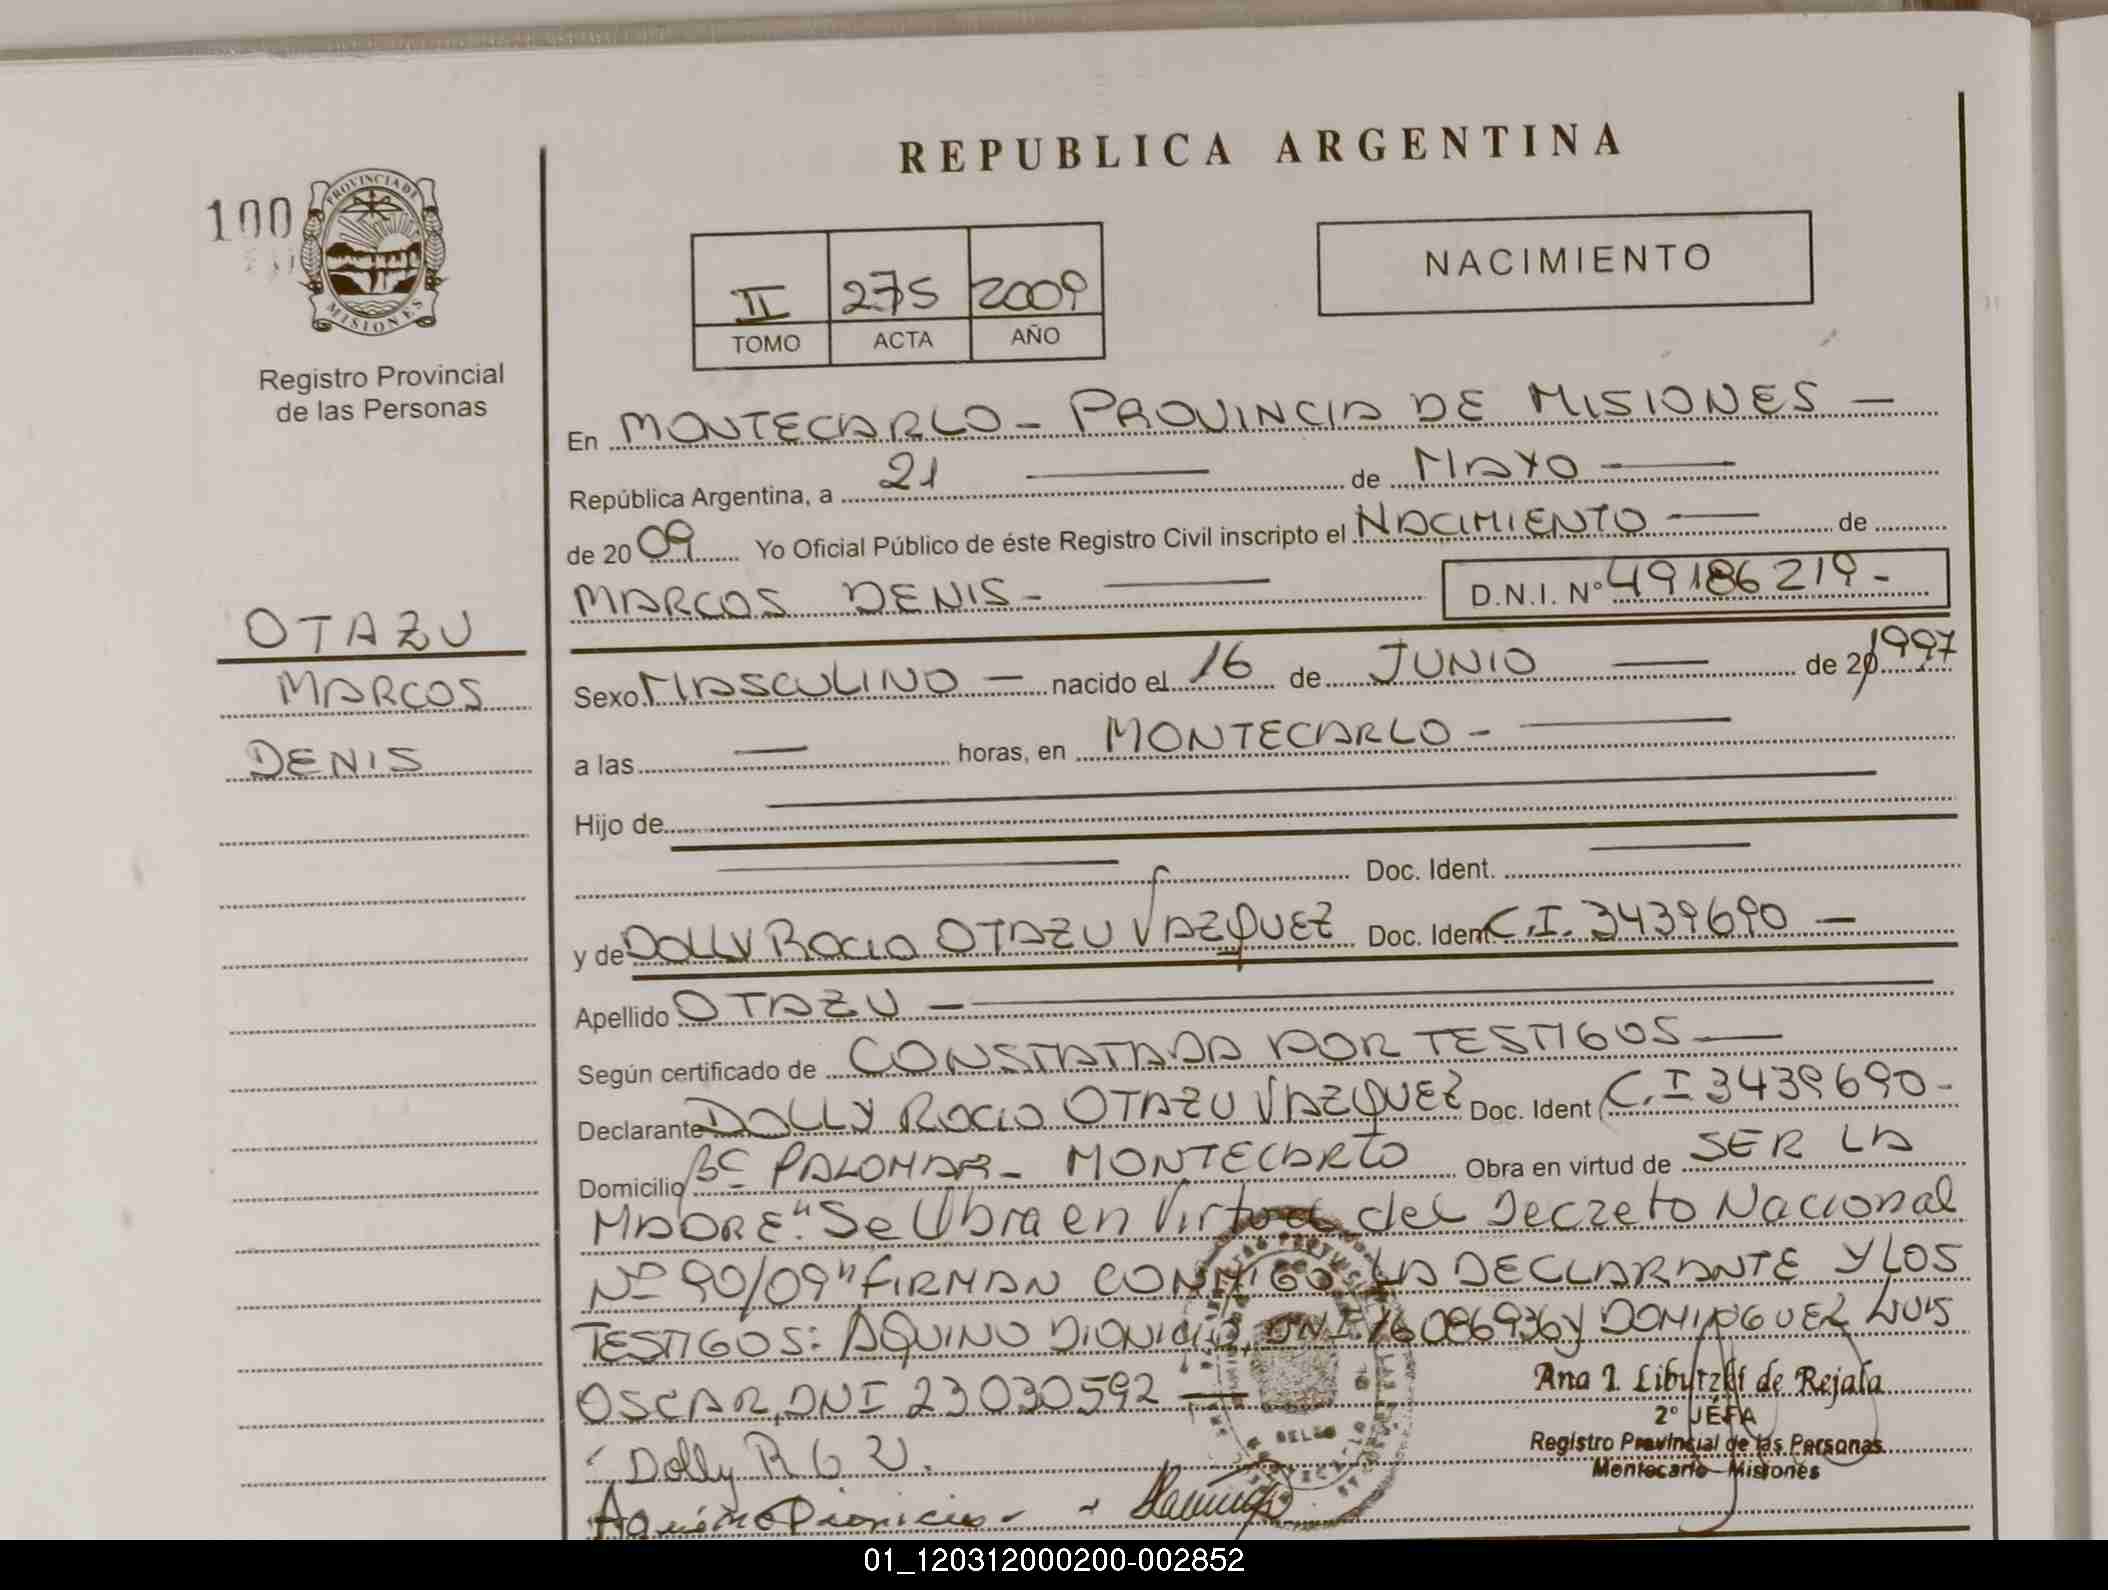 REPUBLICA ARGENTINA
100
PROVINCIA DE
MISIONES
Registro Provincial
de las Personas
II 275 2009
TOMO ACTA AÑO
NACIMIENTO
En MONTECARLO - PROVINCIA DE MISIONES -
República Argentina, a 21 de MAYO
de 20 09 Yo Oficial Público de éste Registro Civil inscripto el NACIMIENTO de
MARCOS DENIS - D.N.I. Nº 49186219 -
OTAZU
MARCOS
DENIS
Sexo MASCULINO - nacido el 16 de JUNIO de 20 1997
a las horas, en MONTECARLO -
Hijo de
Doc. Ident.
y de DOLLY ROCIO OTAZU VAZQUEZ Doc. Ident C.I. 3439690 -
Apellido OTAZU -
Según certificado de CONSTATADA POR TESTIGOS
Declarante DOLLY ROCIO OTAZU VAZQUEZ Doc. Ident C.I 3439690 -
Domicilio Bº PALOMAR - MONTECARLO Obra en virtud de SER LA
MADRE. "Se Obra en Virtud del Decreto Nacional
Nº 90/09" FIRMAN CONMIGO LA DECLARANTE Y LOS
TESTIGOS: AQUINO DIONICIO, DNI. 16086936 y DOMINGUEZ LUIS
OSCAR, DNI 23030592
Ana I. Liburzki de Rejala
2º JEFA
Registro Provincial de las Personas
Montecarlo - Misiones
Dolly R O V.
Aquino Dionicio
01_120312000200-002852